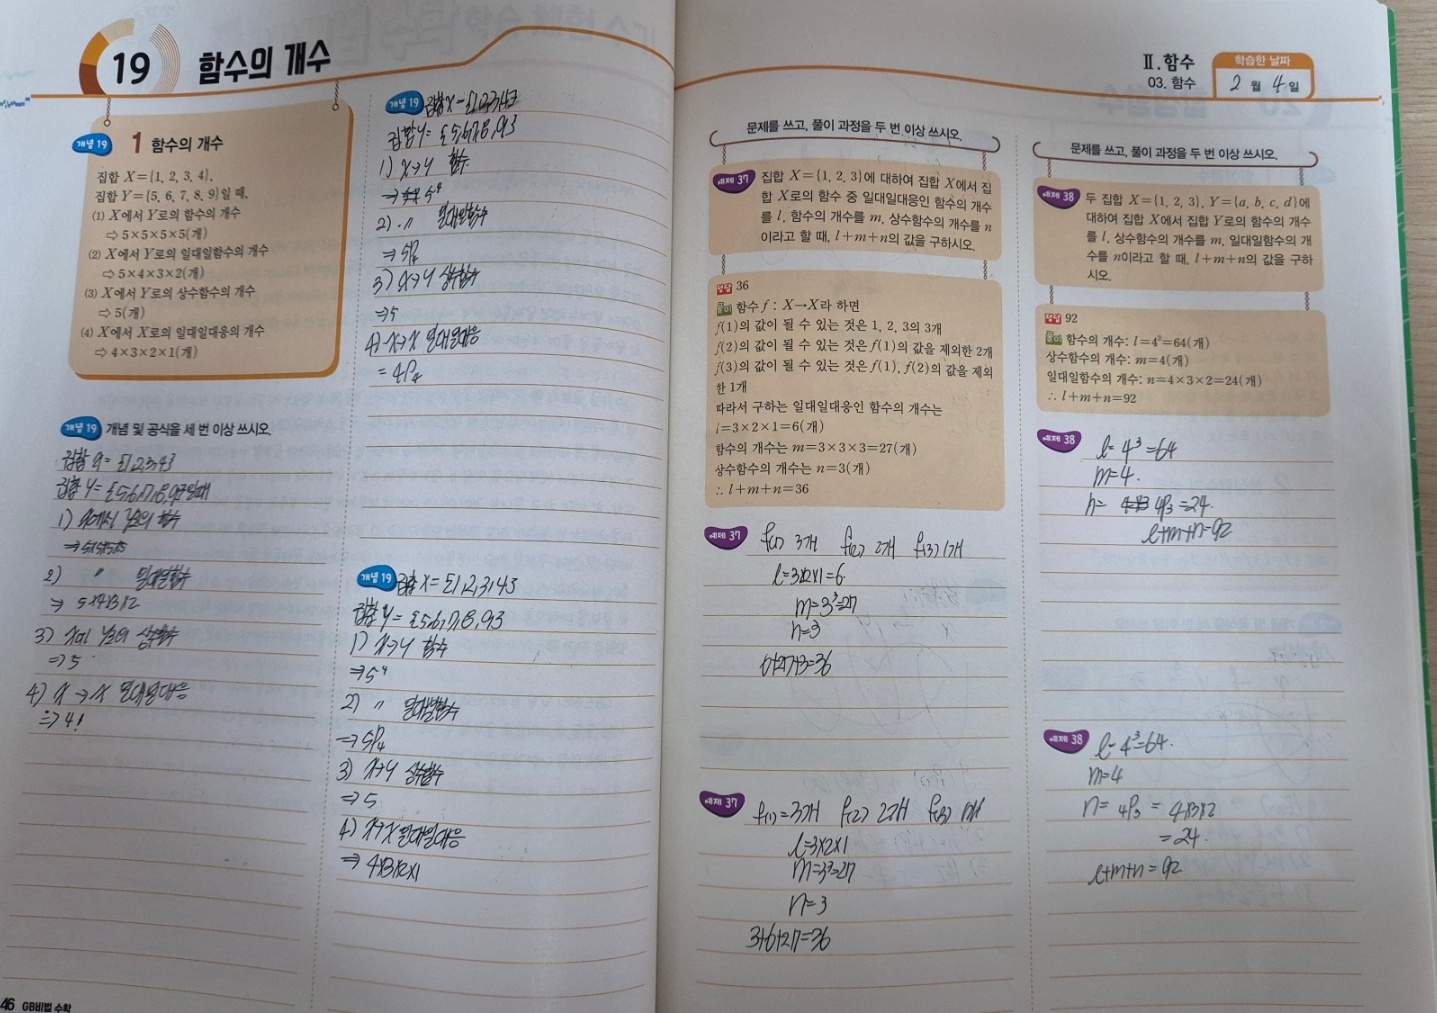 19 함수의 개수
개념 19 1 함수의 개수
집합 X={1, 2, 3, 4},
집합 Y={5, 6, 7, 8, 9}일 때,
(1) X에서 Y로의 함수의 개수
⇨ 5×5×5×5(개)
(2) X에서 Y로의 일대일함수의 개수
⇨ 5×4×3×2(개)
(3) X에서 Y로의 상수함수의 개수
⇨ 5(개)
(4) X에서 X로의 일대일대응의 개수
⇨ 4×3×2×1(개)
개념 19 개념 및 공식을 세 번 이상 쓰시오.
집합 = {1,2,3,4}
집합 Y = {5,6,7,8,9}일때
1) X에서 Y로의 함수
⇒ 5×5×5×5
2) 〃 일대일함수
⇒ 5×4×3×2
3) Y로의 상수함수
⇒ 5
4) X → X 일대일대응
⇒ 4!
개념 19 집합 X = {1,2,3,4}
집합 Y = {5,6,7,8,9}
1) X→Y 함수
⇒ 5⁴
2) 〃 일대일함수
⇒ 5P4
3) X→Y 상수함수
⇒ 5
4) X→X 일대일대응
= 4P4
개념 19 집합 X = {1,2,3,4}
집합 Y = {5,6,7,8,9}
1) X→Y 함수
⇒ 5⁴
2) 〃 일대일함수
⇒ 5P4
3) X→Y 상수함수
⇒ 5
4) X→X 일대일대응
⇒ 4×3×2×1
46 GB비법 수학
Ⅱ. 함수
03. 함수
학습한 날짜
2월 4일
문제를 쓰고, 풀이 과정을 두 번 이상 쓰시오.
예제 37 집합 X={1, 2, 3}에 대하여 집합 X에서 집
합 X로의 함수 중 일대일대응인 함수의 개수
를 l, 함수의 개수를 m, 상수함수의 개수를 n
이라고 할 때, l+m+n의 값을 구하시오.
정답 36
풀이 함수 f : X→X라 하면
f(1)의 값이 될 수 있는 것은 1, 2, 3의 3개
f(2)의 값이 될 수 있는 것은 f(1)의 값을 제외한 2개
f(3)의 값이 될 수 있는 것은 f(1), f(2)의 값을 제외
한 1개
따라서 구하는 일대일대응인 함수의 개수는
l=3×2×1=6(개)
함수의 개수는 m=3×3×3=27(개)
상수함수의 개수는 n=3(개)
∴ l+m+n=36
예제 37 f(1) 3개 f(2) 2개 f(3) 1개
l=3×2×1=6
m=3³=27
n=3
6+27+3=36
예제 37 f(1)=3개 f(2) 2개 f(3) 1개
l=3×2×1
m=3³=27
n=3
3+6+27=36
문제를 쓰고, 풀이 과정을 두 번 이상 쓰시오.
예제 38 두 집합 X={1, 2, 3}, Y={a, b, c, d}에
대하여 집합 X에서 집합 Y로의 함수의 개수
를 l, 상수함수의 개수를 m, 일대일함수의 개
수를 n이라고 할 때, l+m+n의 값을 구하
시오.
정답 92
풀이 함수의 개수: l=4³=64(개)
상수함수의 개수: m=4(개)
일대일함수의 개수: n=4×3×2=24(개)
∴ l+m+n=92
예제 38 l= 4³=64
m=4.
n= 4P3 =24.
l+m+n=92
예제 38 l= 4³=64.
m=4
n= 4P3 = 4×3×2
=24.
l+m+n=92